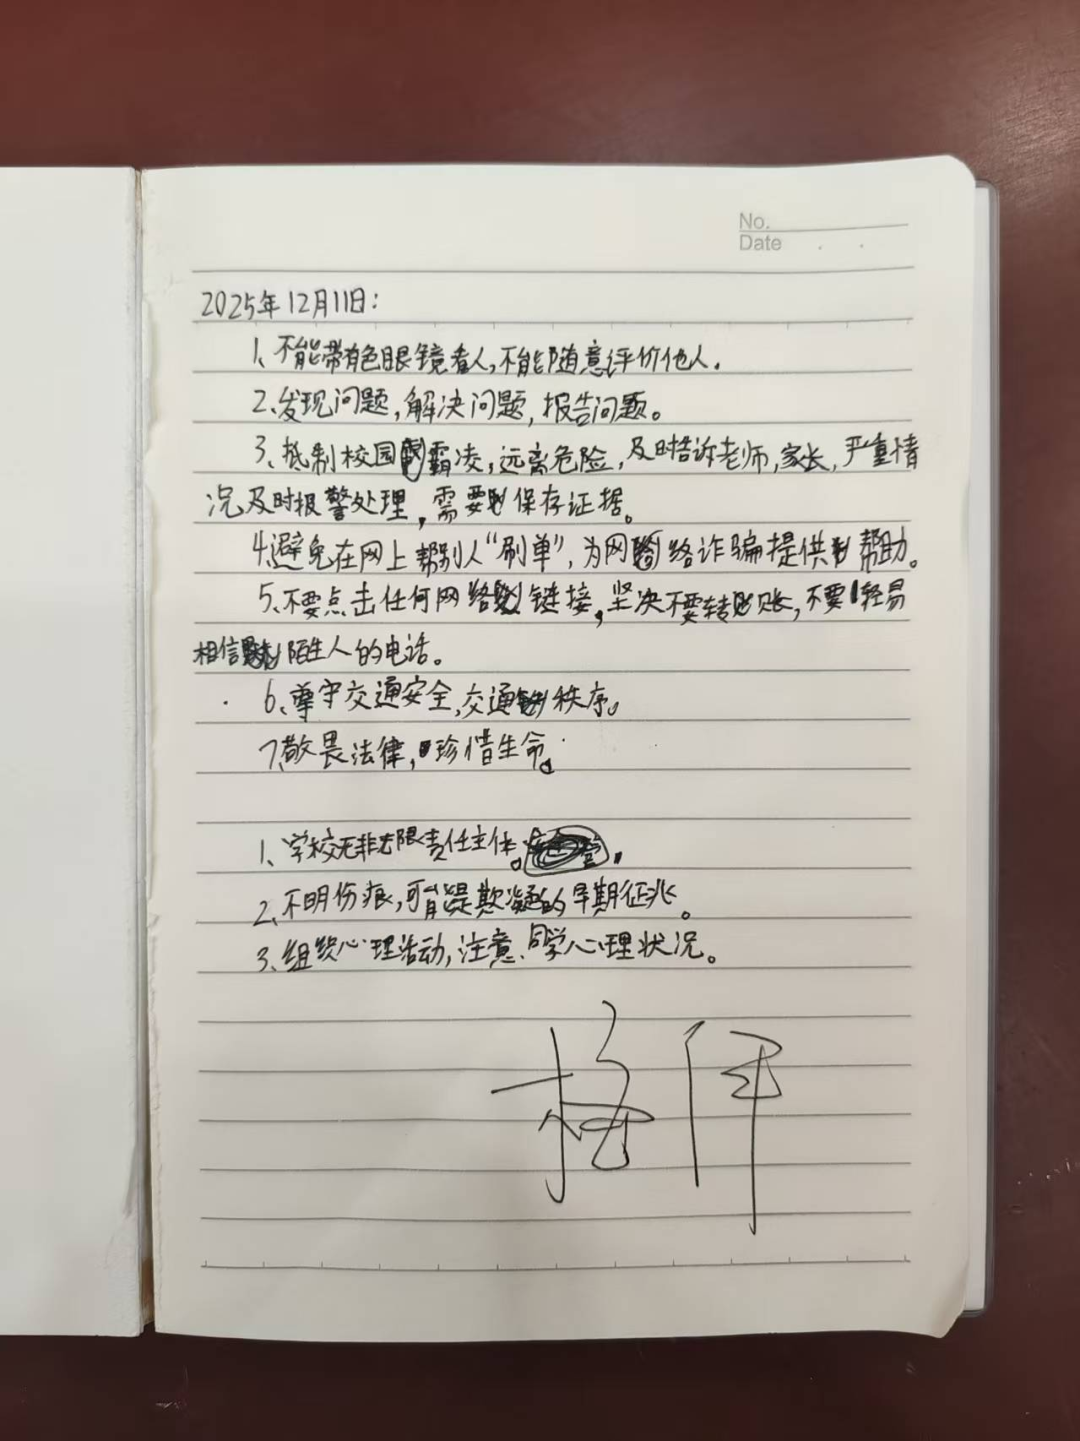 No.
Date
2025年12月11日：
1、不能带有色眼镜看人，不能随意评价他人.
2、发现问题，解决问题，报告问题。
3、抵制校园霸凌，远离危险，及时告诉老师，家长，严重情
况及时报警处理，需要保存证据。
4.避免在网上帮别人“刷单”，为网络诈骗提供帮助。
5、不要点击任何网络链接，坚决不要转账，不要轻易
相信陌生人的电话。
6、尊守交通安全，交通秩序。
7.敬畏法律，珍惜生命。
1、学校无非无限责任主体。
2、不明伤痕，可能是欺凌的早期征兆。
3、组织心理活动，注意、同学心理状况。